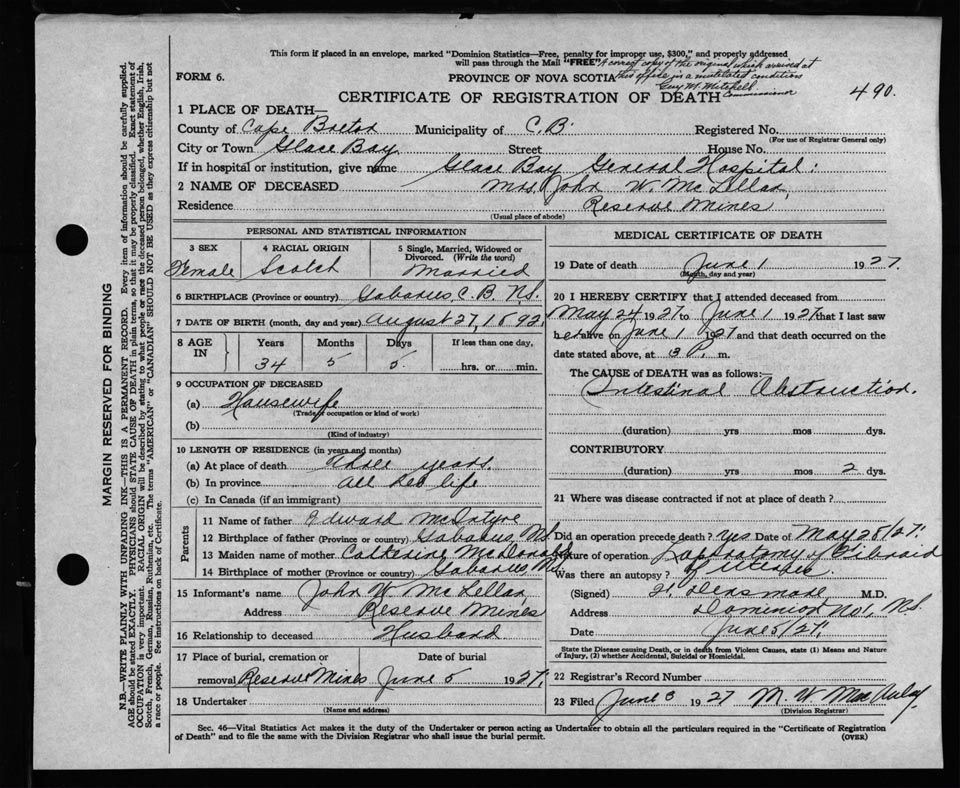 This form if placed in an envelope, marked "Dominion Statistics—Free, penalty for improper use, $300," and properly addressed
will pass through the Mail "FREE" A correct copy of the original which arrived at
FORM 6. PROVINCE OF NOVA SCOTIA this office in a mutilated condition
Guy M. Mitchell
CERTIFICATE OF REGISTRATION OF DEATH Commissioner 490.
1 PLACE OF DEATH—
County of Cape Breton Municipality of C.B. Registered No.
(For use of Registrar General only)
City or Town Glace Bay Street House No.
If in hospital or institution, give name Glace Bay General Hospital:
2 NAME OF DECEASED Mrs. John W. McLellan,
Residence Reserve Mines
(Usual place of abode)
PERSONAL AND STATISTICAL INFORMATION
3 SEX 4 RACIAL ORIGIN 5 Single, Married, Widowed or
Divorced. (Write the word)
Female Scotch Married
6 BIRTHPLACE (Province or country) Gabarus, C.B. N.S.
7 DATE OF BIRTH (month, day and year) August 27, 1892,
8 AGE IN Years Months Days If less than one day,
34 5 5. hrs. or min.
9 OCCUPATION OF DECEASED
(a) Housewife
(Trade, occupation or kind of work)
(b)
(Kind of industry)
10 LENGTH OF RESIDENCE (in years and months)
(a) At place of death three years.
(b) In province all her life
(c) In Canada (if an immigrant)
Parents
11 Name of father Edward McIntyre
12 Birthplace of father (Province or country) Gabarus, N.S.
13 Maiden name of mother Catherine McDonald
14 Birthplace of mother (Province or country) Gabarus, N.S.
15 Informant's name John W. McLellan,
Address Reserve Mines
16 Relationship to deceased Husband
17 Place of burial, cremation or Date of burial
removal Reserve Mines June 5 1927,
18 Undertaker
(Name and address)
MEDICAL CERTIFICATE OF DEATH
19 Date of death June 1 1927.
(Month, day and year)
20 I HEREBY CERTIFY that I attended deceased from
May 24 1927 to June 1 1927 that I last saw
her alive on June 1 1927 and that death occurred on the
date stated above, at 3 P. m.
The CAUSE of DEATH was as follows:—
Intestinal Obstruction.
(duration) yrs mos dys.
CONTRIBUTORY
(duration) yrs mos 2 dys.
21 Where was disease contracted if not at place of death?
Did an operation precede death? yes Date of May 28/27.
Nature of operation Laparotomy of Fibroid
Was there an autopsy? of uterus
(Signed) Densmore, M.D.
Address Dominion No 1, N.S.
Date June 5/27,
State the Disease causing Death, or in death from Violent Causes, state (1) Means and Nature
of Injury, (2) whether Accidental, Suicidal or Homicidal.
22 Registrar's Record Number
23 Filed June 3 1927 M. W. MacAulay
(Division Registrar)
Sec. 46—Vital Statistics Act makes it the duty of the Undertaker or person acting as Undertaker to obtain all the particulars required in the "Certificate of Registration
of Death" and to file the same with the Division Registrar who shall issue the burial permit. (OVER)
MARGIN RESERVED FOR BINDING
N.B.—WRITE PLAINLY WITH UNFADING INK—THIS IS A PERMANENT RECORD. Every item of information should be carefully supplied.
AGE should be stated EXACTLY. PHYSICIANS should STATE CAUSE OF DEATH in plain terms, so that it may be properly classified. Exact statement of
OCCUPATION is very important. RACIAL ORIGIN will be described by stating to what people or race the deceased person belonged, whether English, Irish,
Scotch, French, German, Russian, Ruthenian, etc. The terms "AMERICAN" or "CANADIAN" SHOULD NOT BE USED as they express citizenship but not
a race or people. See instructions on back of Certificate.